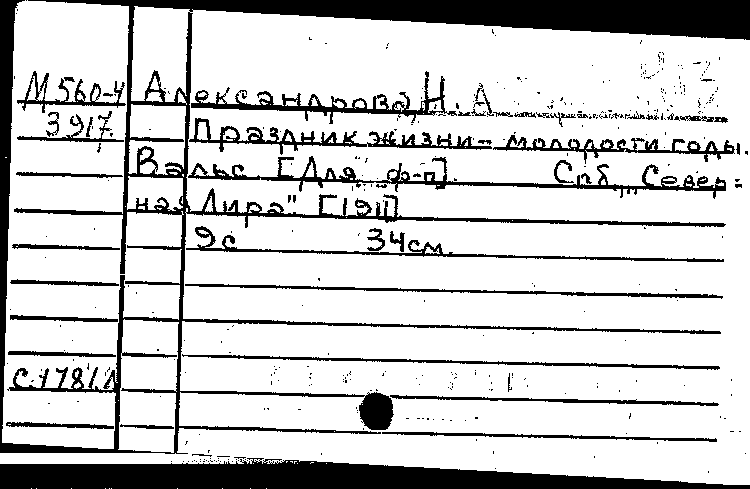 М 560-4 Александрова, Н. А
3917. Праздник жизни - молодости годы.
Вальс. [Для ф-п]. Спб., „Север=
ная Лира" [1911]
9с 34см.